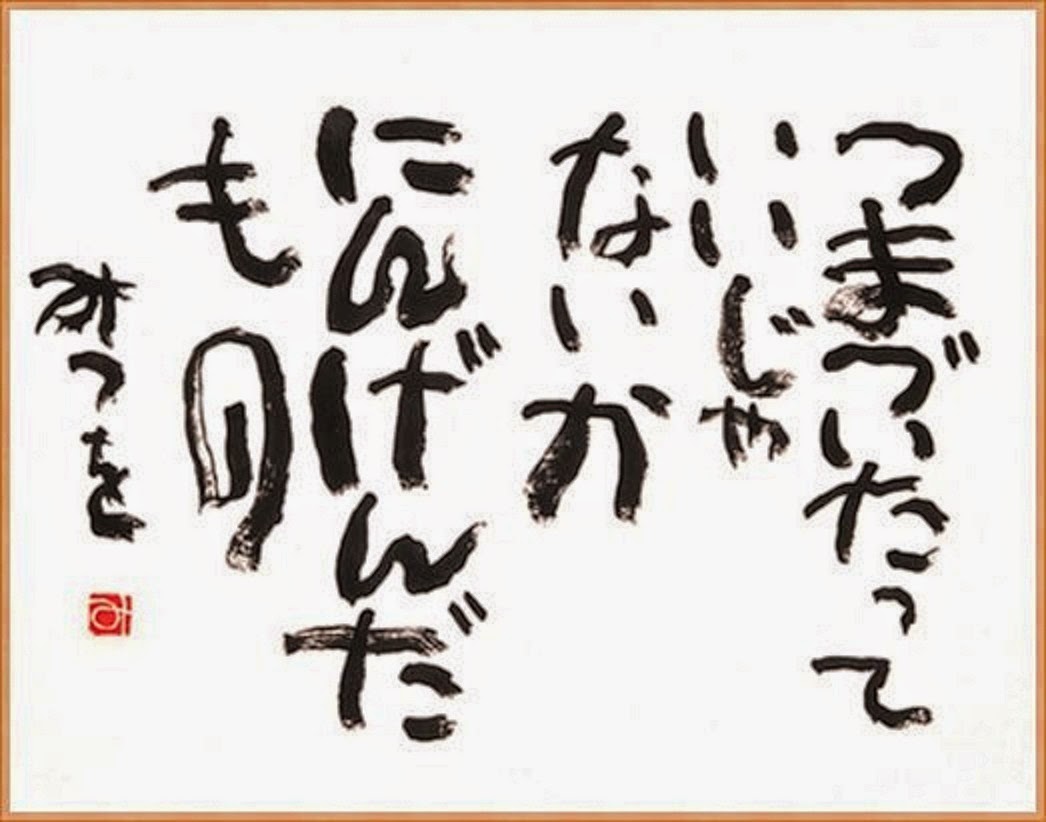 つまづいたって
いいじゃ
ないか
にんげんだ
もの
みつを
み